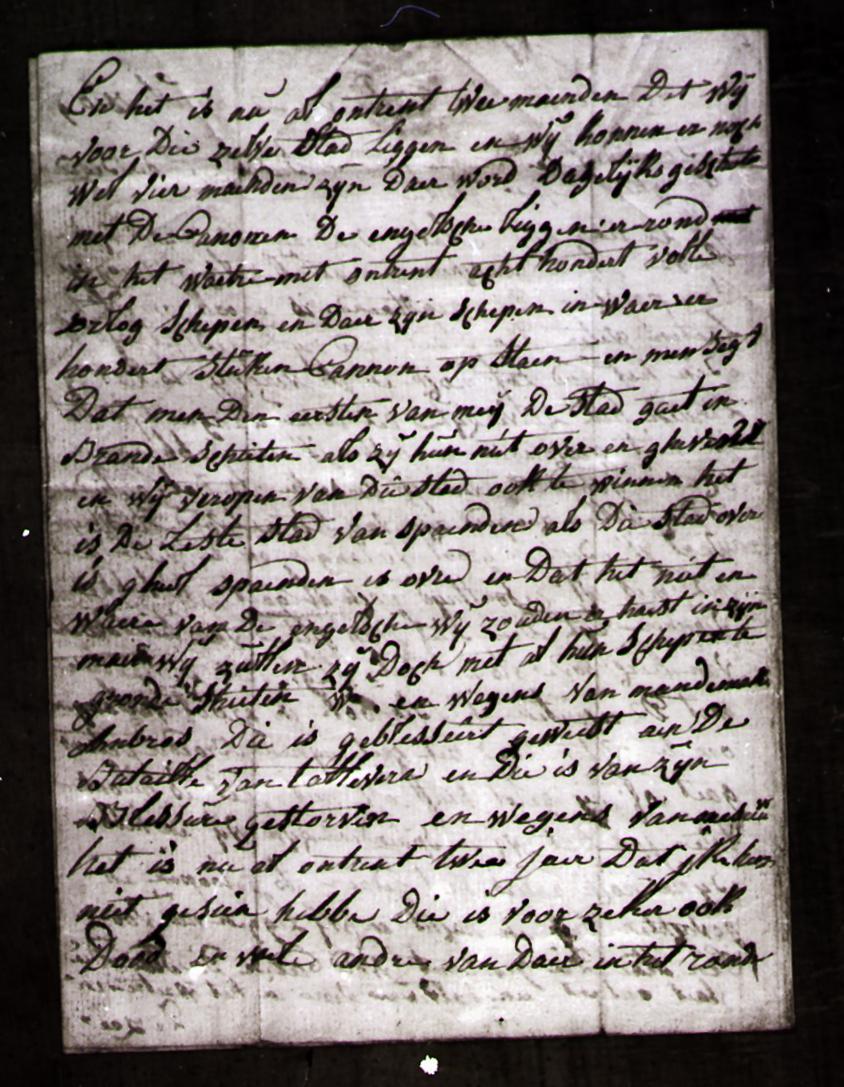 En het is nu al ontrent twee maenden Dat wij
voor Die zelve stad Liggen en wij konnen er noch
wel vier maenden zijn Daer word Dagelijks geschote
met De Canonen De engelsche Liggen er rond
in het waeter met ontrent acht hondert volle
orlog schepen en Daer zijn schepen in waer er
hondert stukken Cannon op staen en men segd
Dat men Den eersten van meij De stad gaet in
Brande schieten als zij hun niet over en gheven
en wij veropen van Die stad ook te winnen het
is De Leste stad van spaenden als Die stad over
is gheel spaenden is over en Dat het niet en
waere van De engelsche wij zouden er haest in zijn
maer wij zullen zij Doch met al hun schepen te
gronde schieten en wegens van
Ambros Die is geblesseert geweest aen De
Bataille van tallevera en Die is van zijn
Blessure gestorven en wegens van
het is nu al ontrent twee jaer Dat jk hem
niet gesien hebbe Die is voor zeker ook
Dood en vele andre van Daer in het ronde